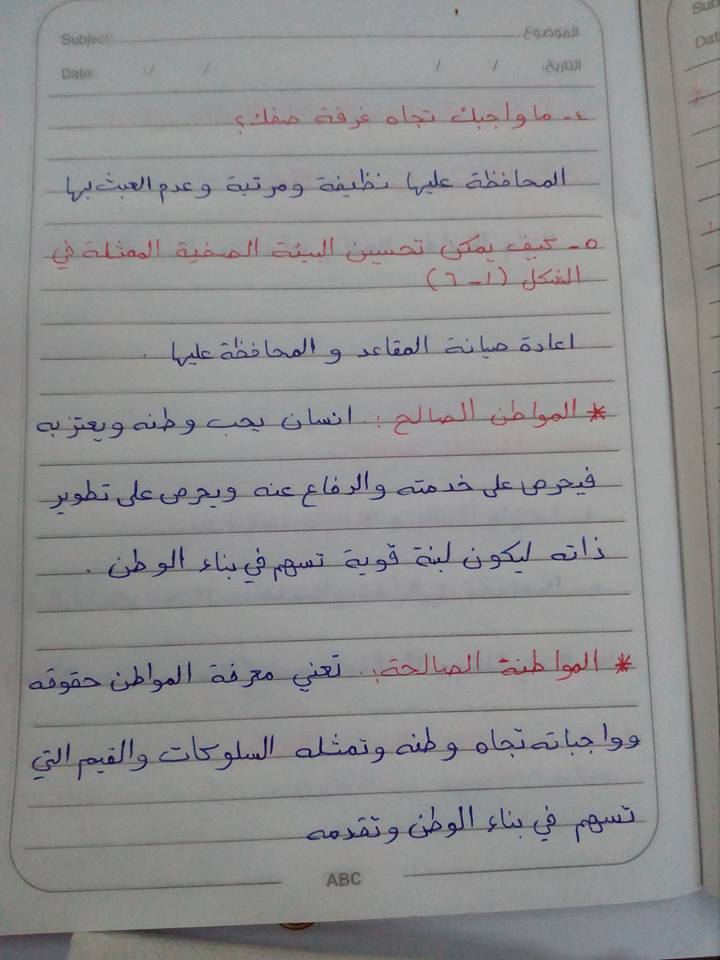 Subject: الموضوع
Date: / / / / التاريخ:
٤- ما واجبك تجاه غرفة صفك؟
المحافظة عليها نظيفة ومرتبة وعدم العبث بها
٥- كيف يمكن تحسين البيئة الصفية الممثلة في
الشكل (١-٦)
اعادة صيانة المقاعد و المحافظة عليها .
* المواطن الصالح : انسان يحب وطنه ويعتز به
فيحرص على خدمته والدفاع عنه ويحرص على تطوير
ذاته ليكون لبنة قوية تسهم في بناء الوطن .
* المواطنة الصالحة : تعني معرفة المواطن حقوقه
وواجباته تجاه وطنه وتمثله السلوكات والقيم التي
تسهم في بناء الوطن وتقدمه
ABC